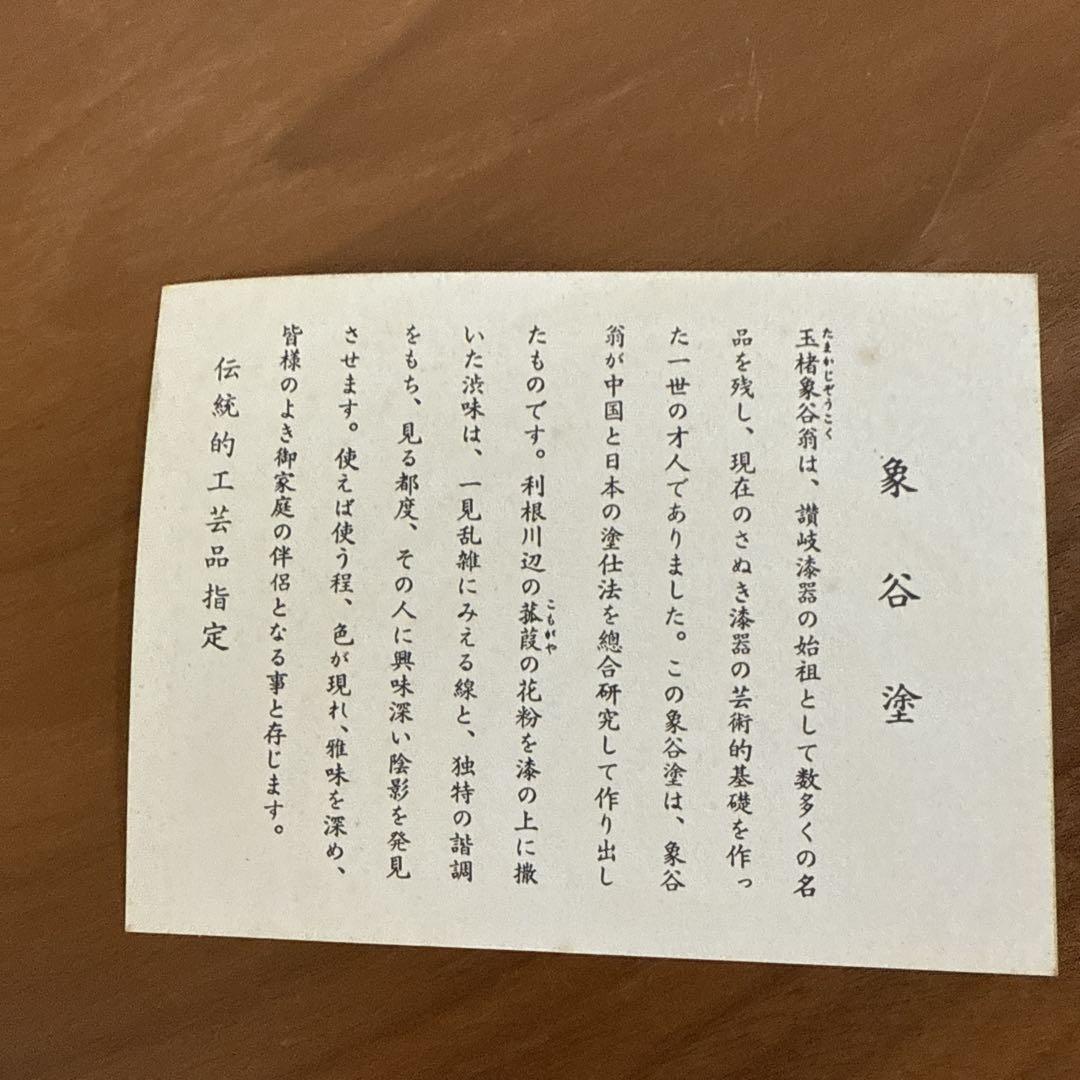 象谷塗
玉楮象谷翁は、讃岐漆器の始祖として数多くの名
たまかじぞうこく
品を残し、現在のさぬき漆器の芸術的基礎を作っ
た一世の才人でありました。この象谷塗は、象谷
翁が中国と日本の塗仕法を總合研究して作り出し
たものです。利根川辺の菰葭の花粉を漆の上に撒
こもがや
いた渋味は、一見乱雑にみえる線と、独特の諧調
をもち、見る都度、その人に興味深い陰影を発見
させます。使えば使う程、色が現れ、雅味を深め、
皆様のよき御家庭の伴侶となる事と存じます。
伝統的工芸品指定